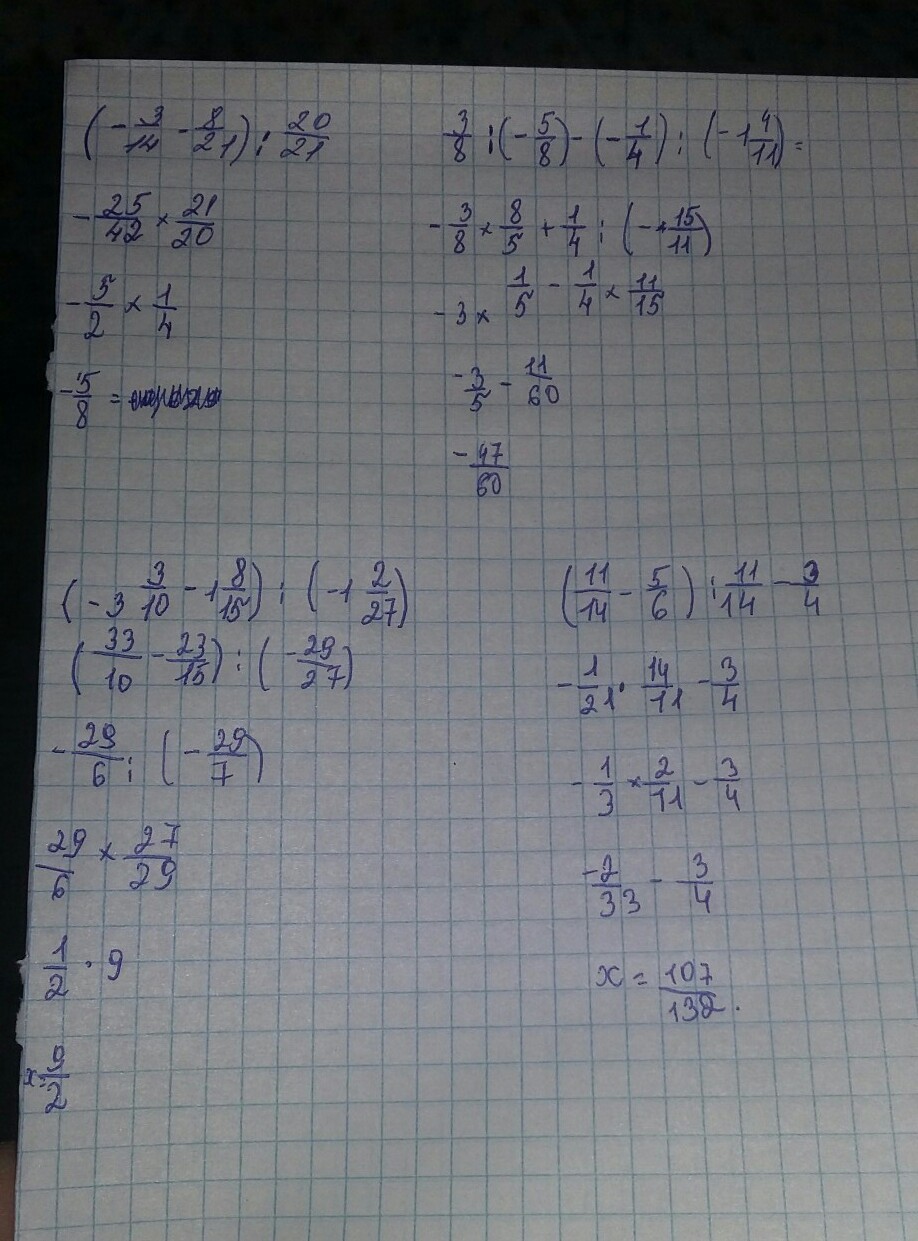 (-3/14 - 8/21) : 20/21
-25/42 × 21/20
-5/2 × 1/4
-5/8 =
3/8 : (-5/8) - (-1/4) : (-1 4/11) =
-3/8 × 8/5 + 1/4 : (-15/11)
-3 × 1/5 - 1/4 × 11/15
-3/5 - 11/60
-47/60
(-3 3/10 - 1 8/15) : (-1 2/27)
(33/10 - 23/15) : (-29/27)
-29/6 : (-29/7)
29/6 × 27/29
1/2 · 9
9/2
(11/14 - 5/6) : 11/14 - 3/4
-1/21 · 14/11 - 3/4
-1/3 × 2/11 - 3/4
-2/33 - 3/4
x = 107/132.